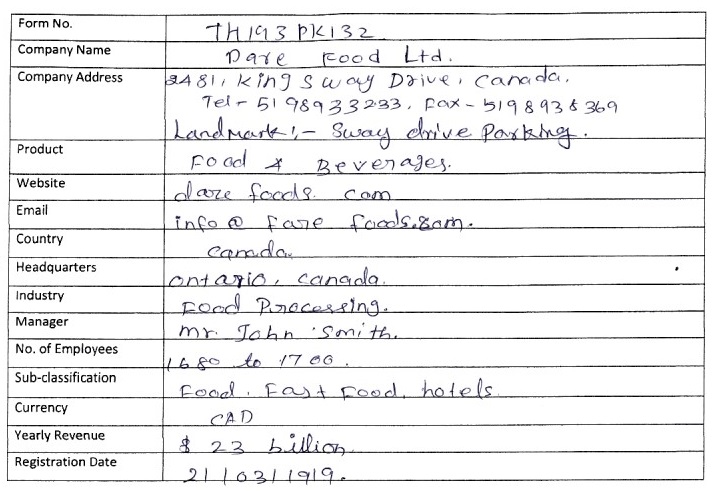 Form No. TH193PK132
Company Name Dare Food Ltd.
Company Address 2481, Kingsway Drive, Canada.
Tel - 5198933233, Fax - 5198938369
Landmark:- Sway drive Parking.
Product Food & Beverages.
Website dare foods. com
Email info@fare foods.com.
Country Canada.
Headquarters ontario, canada.
Industry Food Processing.
Manager mr. John Smith.
No. of Employees 1680 to 1700.
Sub-classification Food, Fast Food, hotels.
Currency CAD
Yearly Revenue $ 23 billion
Registration Date 21/03/1919.